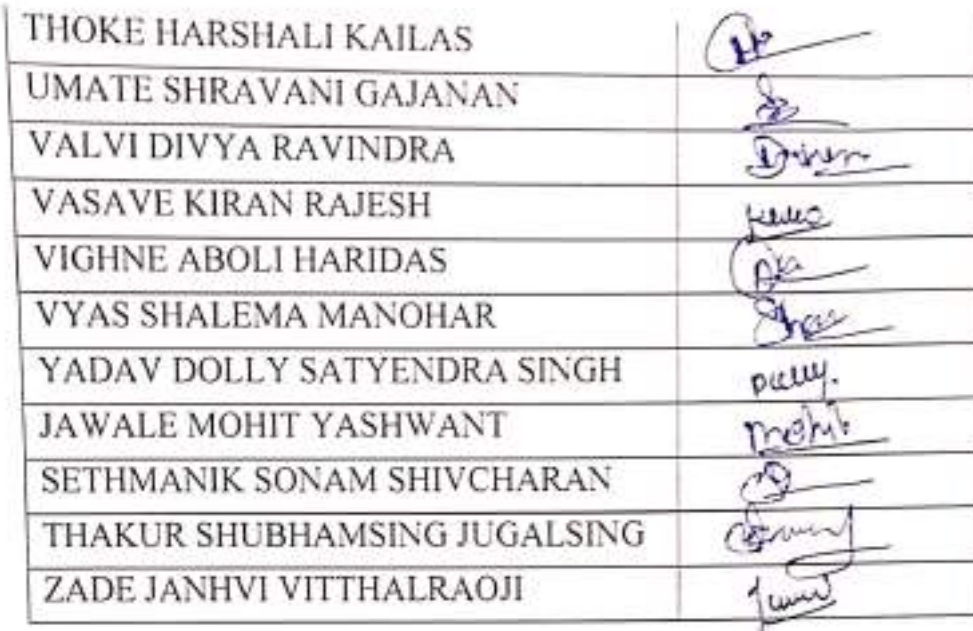 THOKE HARSHALI KAILAS
UMATE SHRAVANI GAJANAN
VALVI DIVYA RAVINDRA
VASAVE KIRAN RAJESH
VIGHNE ABOLI HARIDAS
VYAS SHALEMA MANOHAR
YADAV DOLLY SATYENDRA SINGH
JAWALE MOHIT YASHWANT Mohit
SETHMANIK SONAM SHIVCHARAN
THAKUR SHUBHAMSING JUGALSING
ZADE JANHVI VITTHALRAOJI